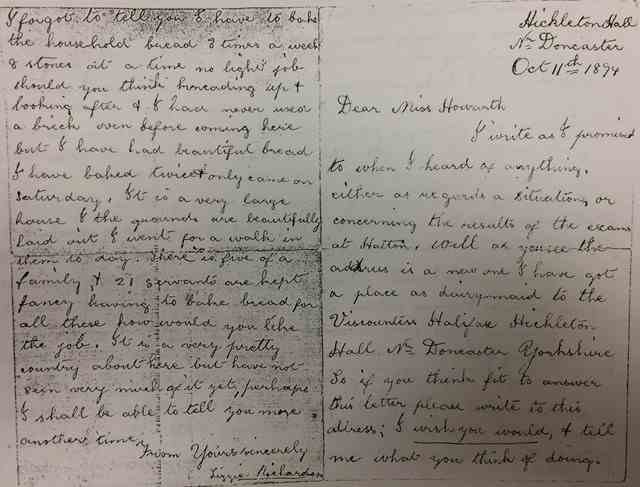 Hickleton Hall
Nr. Doncaster
Oct 11th 1894
Dear Miss Howarth
I write as I promised
to when I heard of anything,
either as regards a situation, or
concerning the results of the exams
at Halton. Well as you see the
address is a new one I have got
a place as dairymaid to the
Viscountess Halifax Hickleton
Hall Nr. Doncaster Yorkshire
So if you think fit to answer
this letter please write to this
address; I wish you would, & tell
me what you think of doing.
I forgot to tell you I have to bake
the household bread 3 times a week
8 stones at a time no light job
should you think kneading up &
looking after & I had never used
a brick oven before coming here
but I have had beautiful bread
I have baked twice & only came on
Saturday. It is a very large
house & the grounds are beautifully
laid out I went for a walk in
them to day. There is five of a
family & 21 servants are kept
fancy having to bake bread for
all these how would you like
the job. It is a very pretty
country about here but have not
seen very much of it yet, perhaps
I shall be able to tell you more
another time,
From Yours sincerely
Lizzie Richardson